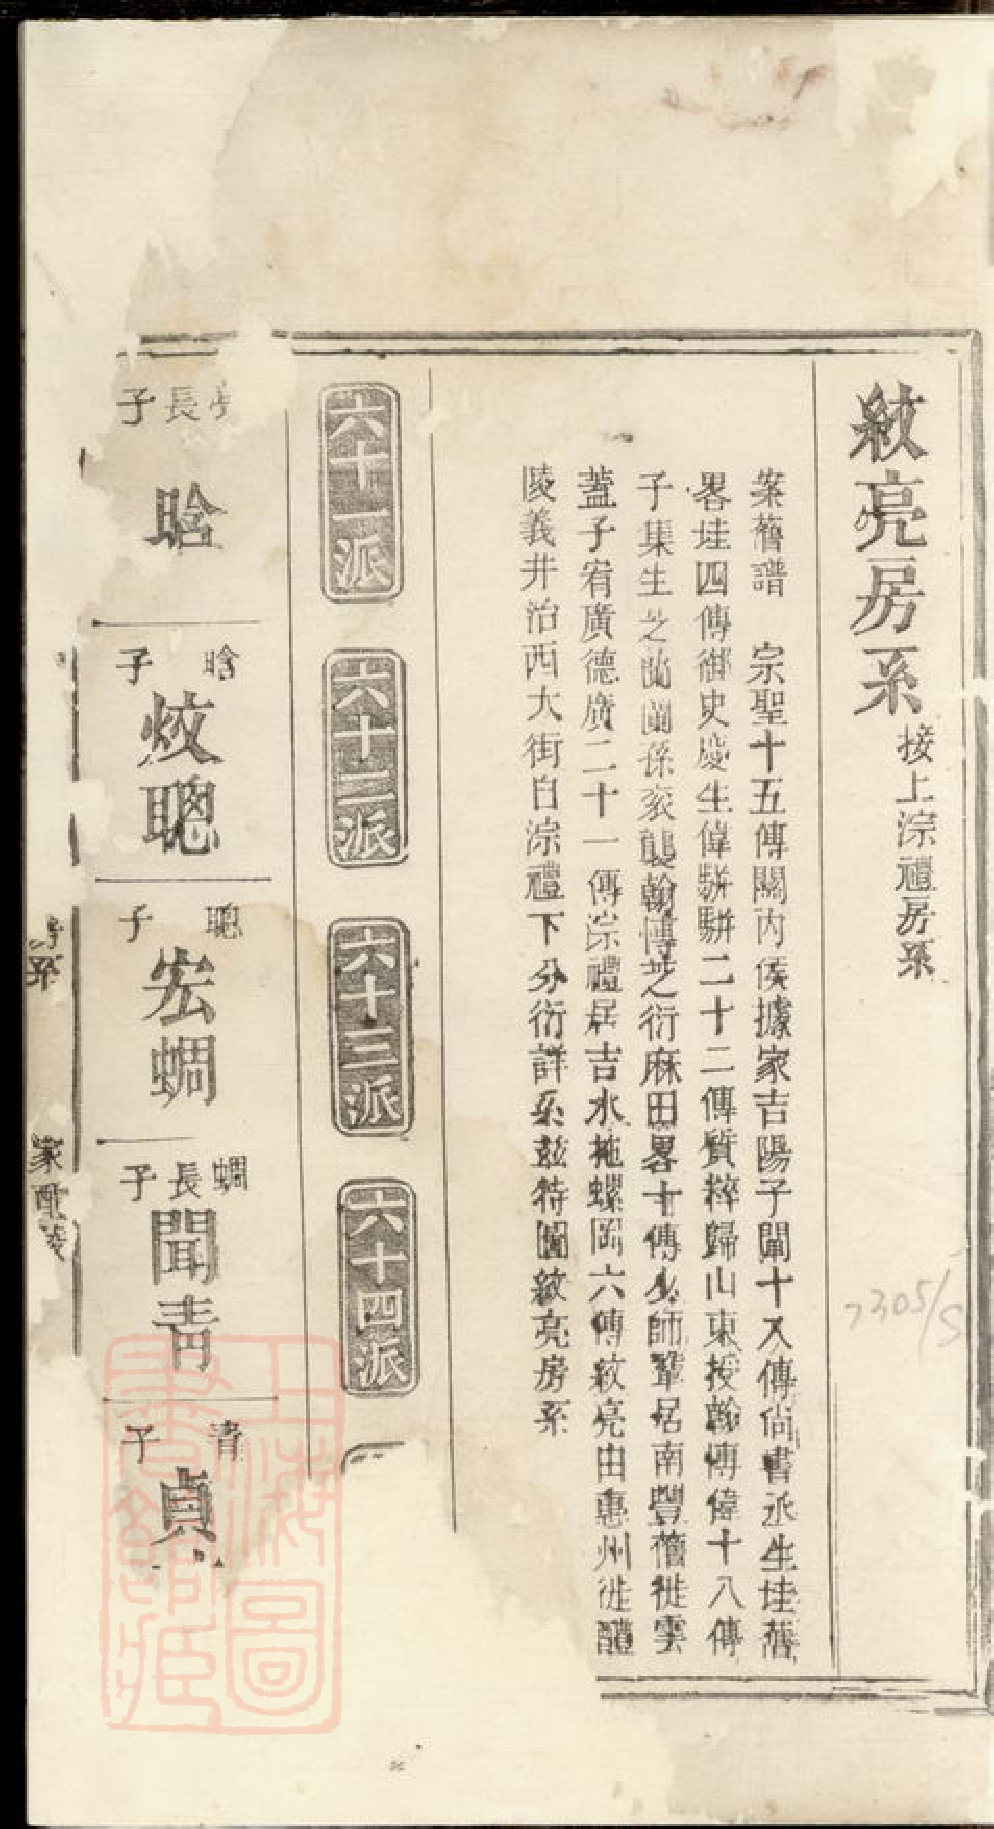 紋亮房系接上淙禮房系
案舊譜 宗聖十五傳關內侯據家吉陽子闡十入傳尙書丞生珪舊
畧珪四傳御史慶生偉駢駢二十二傳質粹歸山東授翰博偉十八傳
子集生芝蘭蘭孫亥襲翰博芝衍麻田畧十傳少師鞏居南豐舊徙雲
蓋子宥廣德廣二十一傳淙禮居吉水拖螺岡六傳紋亮由惠州徙醴
陵義井治西大街自淙禮下分衍詳系玆特圖紋亮房系
六十一派
六十二派
六十三派
六十四派
長子
晗
晗子
烄聰
聰子
宏蜩
蜩長子
聞青
青子
貞
系
家
上海圖書館藏
7305/S